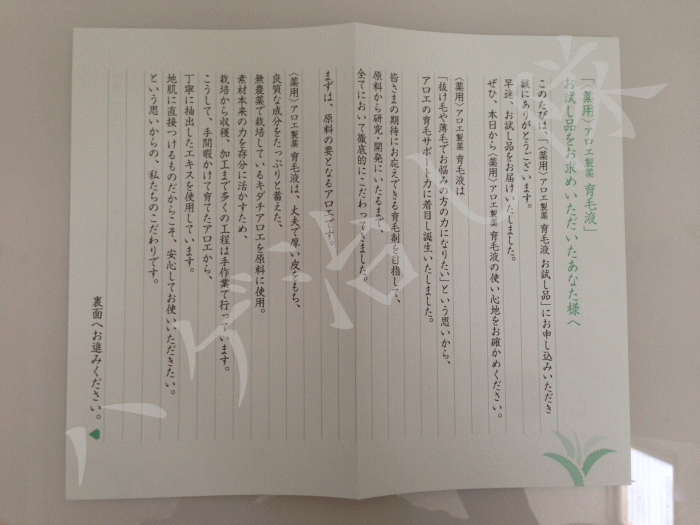 「〈薬用〉アロエ製薬 育毛液」
お試し品をお求めいただいたあなた様へ
このたびは、〈薬用〉アロエ製薬 育毛液 お試し品」にお申し込みいただき
誠にありがとうございます。
早速、お試し品をお届けいたしました。
ぜひ、本日から〈薬用〉アロエ製薬 育毛液の使い心地をお確かめください。
〈薬用〉アロエ製薬 育毛液は
「抜け毛や薄毛でお悩みの方の力になりたい」という思いから、
アロエの育毛サポート力に着目し誕生いたしました。
皆さまの期待にお応えできる育毛剤を目指して、
原料から研究・開発にいたるまで、
全てにおいて徹底的にこだわっていきました。
まずは、原料の要となるアロエです。
〈薬用〉アロエ製薬 育毛液は、丈夫で厚い皮をもち、
良質な成分をたっぷりと蓄えた、
無農薬で栽培しているキダチアロエを原料に使用。
素材本来の力を存分に活かすため、
栽培から収穫、加工まで多くの工程は手作業で行っています。
こうして、手間暇かけて育てたアロエから、
丁寧に抽出したエキスを使用しています。
地肌に直接つけるものだからこそ、安心してお使いいただきたい。
という思いからの、私たちのこだわりです。
裏面へお進みください。